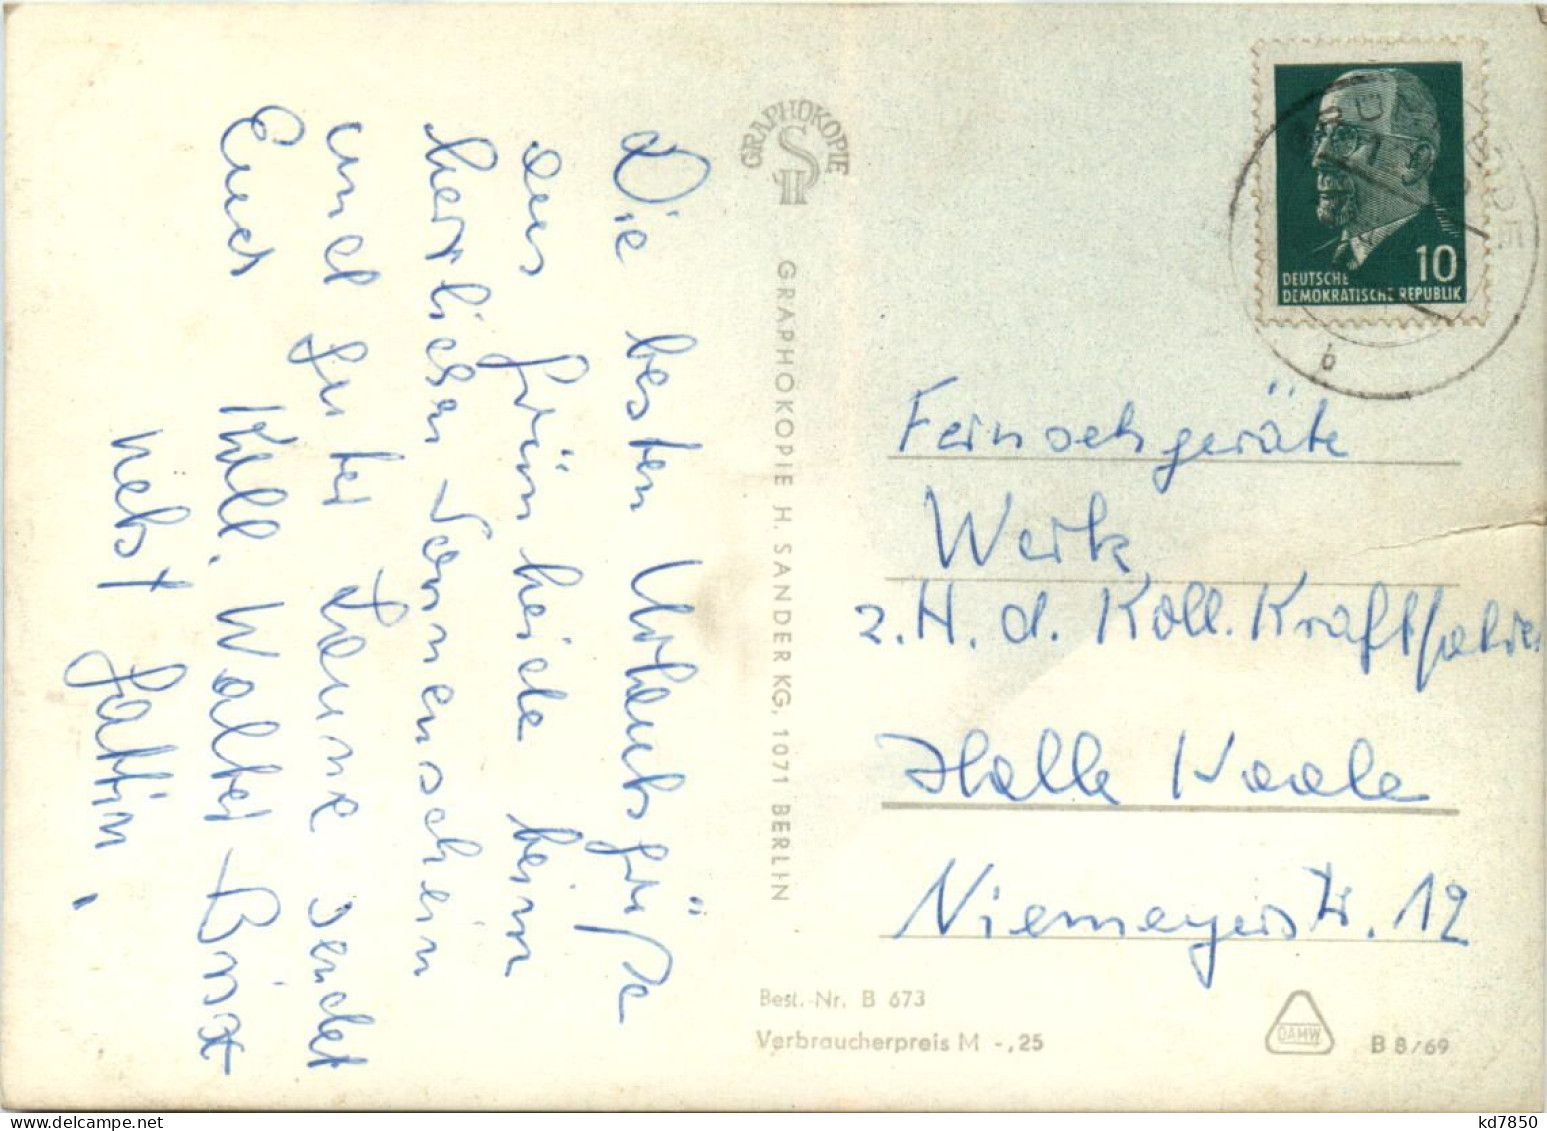 Die besten Urlaubsgrüße
aus Grünheide beim
herrlichen Sonnenschein
und guter Laune sendet
Euch Koll. Walter
nebst Gattin.
GRAPHOKOPIE
H S
GRAPHOKOPIE H. SANDER KG, 1071 BERLIN
DEUTSCHE
DEMOKRATISCHE REPUBLIK
10
b
Fernsehgeräte
Werk
z. H. d. Koll.
Halle Saale
Niemeyerstr. 12
Best.-Nr. B 673
Verbraucherpreis M -,25
DAMW
B 8/69
kd7850